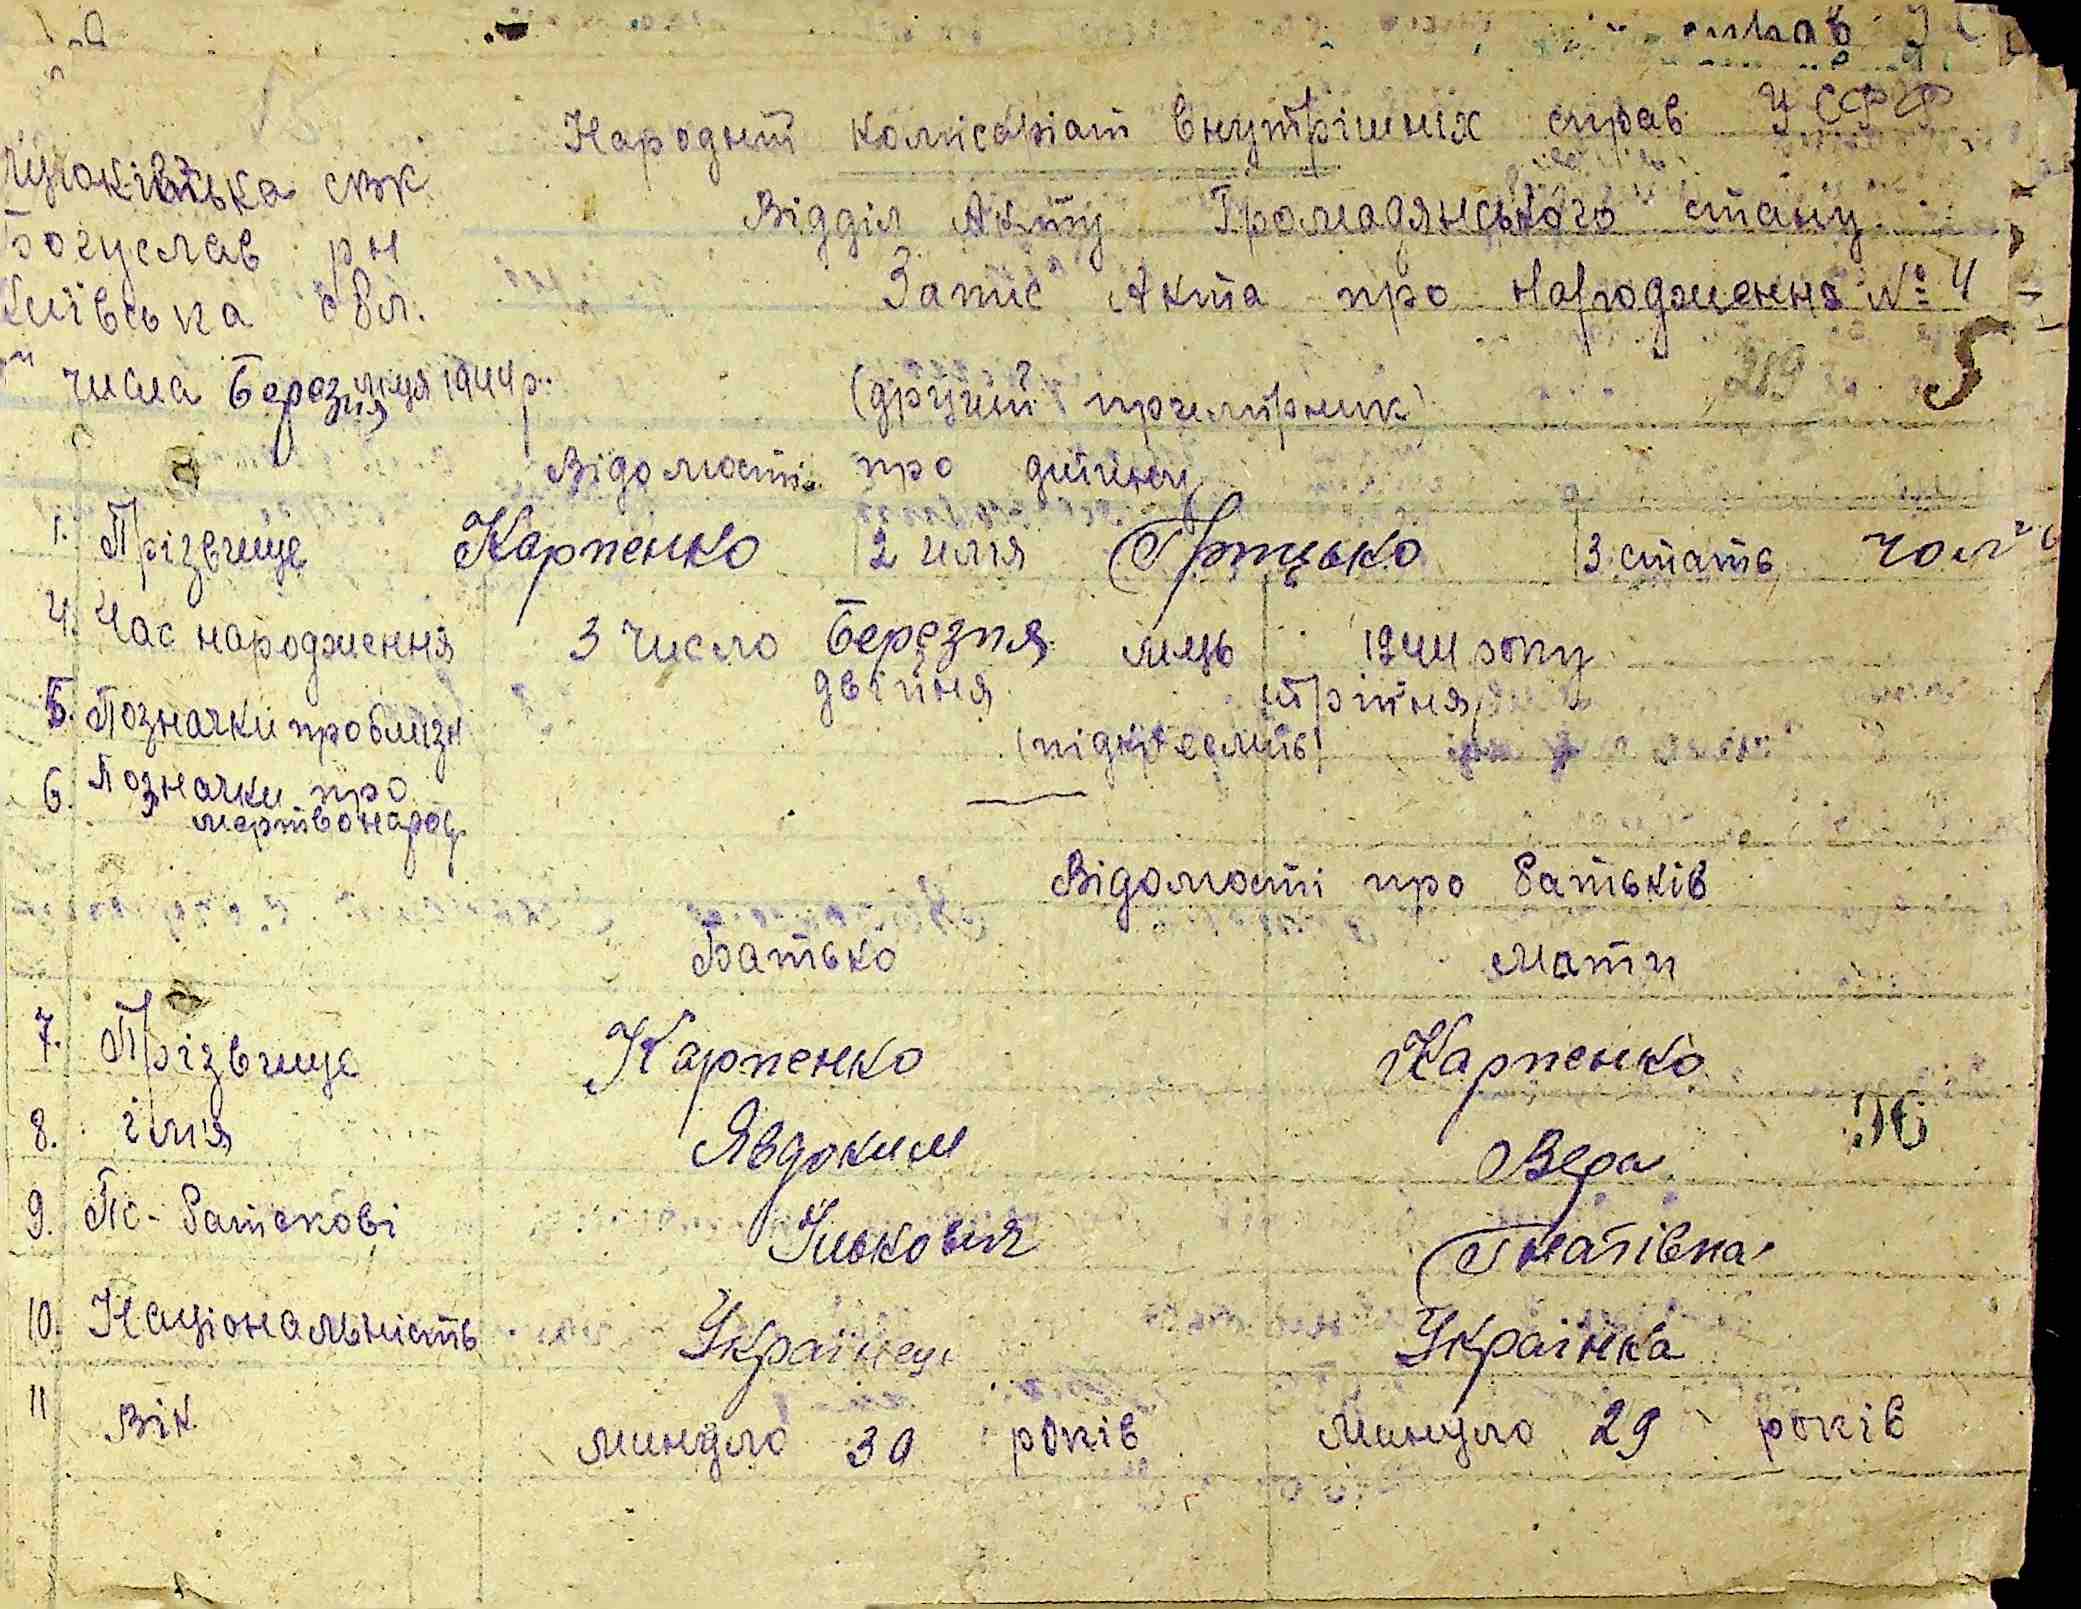 Народній комісаріат Внутрішніх справ УСРР
Відділ Акту Громадянського стану
Запис Акта про народження № 4
сільк.
Богуслав рн
Київська обл.
числа Березня м-ця 1944 р.
(другий примірник)
289 5
Відомості про дитину
1. Прізвище Карпенко 2 імя Грицько 3. стать чол.
4. Час народження 3 число Березня мць 1944 року
5. Позначки про близн двійня трійня
(підкреслить)
6. Позначки про
мертвонарод.
Відомості про батьків
Батько Мати
7. Прізвище Карпенко Карпенко
8. імя Явдоким Вера
9. По-батькові Ількович Гнатівна
10. Національність Українець Українка
11 Вік минуло 30 років минуло 29 років